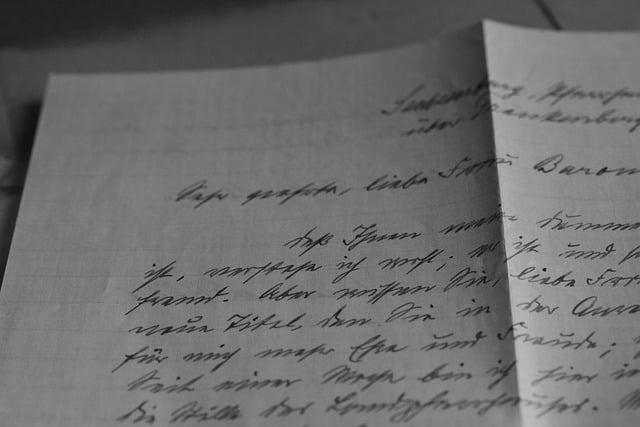 über Frankenberg
Sehr geehrte, liebe Frau Baron
daß Ihnen mein dumme
ist, verstehe ich wohl; er ist und
fremd. Aber wissen Sie, liebe Frau
neue Titel, den Sie in der Anre
für mich mehr Ehre und Freude;
Seit einer Woche bin ich hier in
die Stille des Landpfarrhauses.